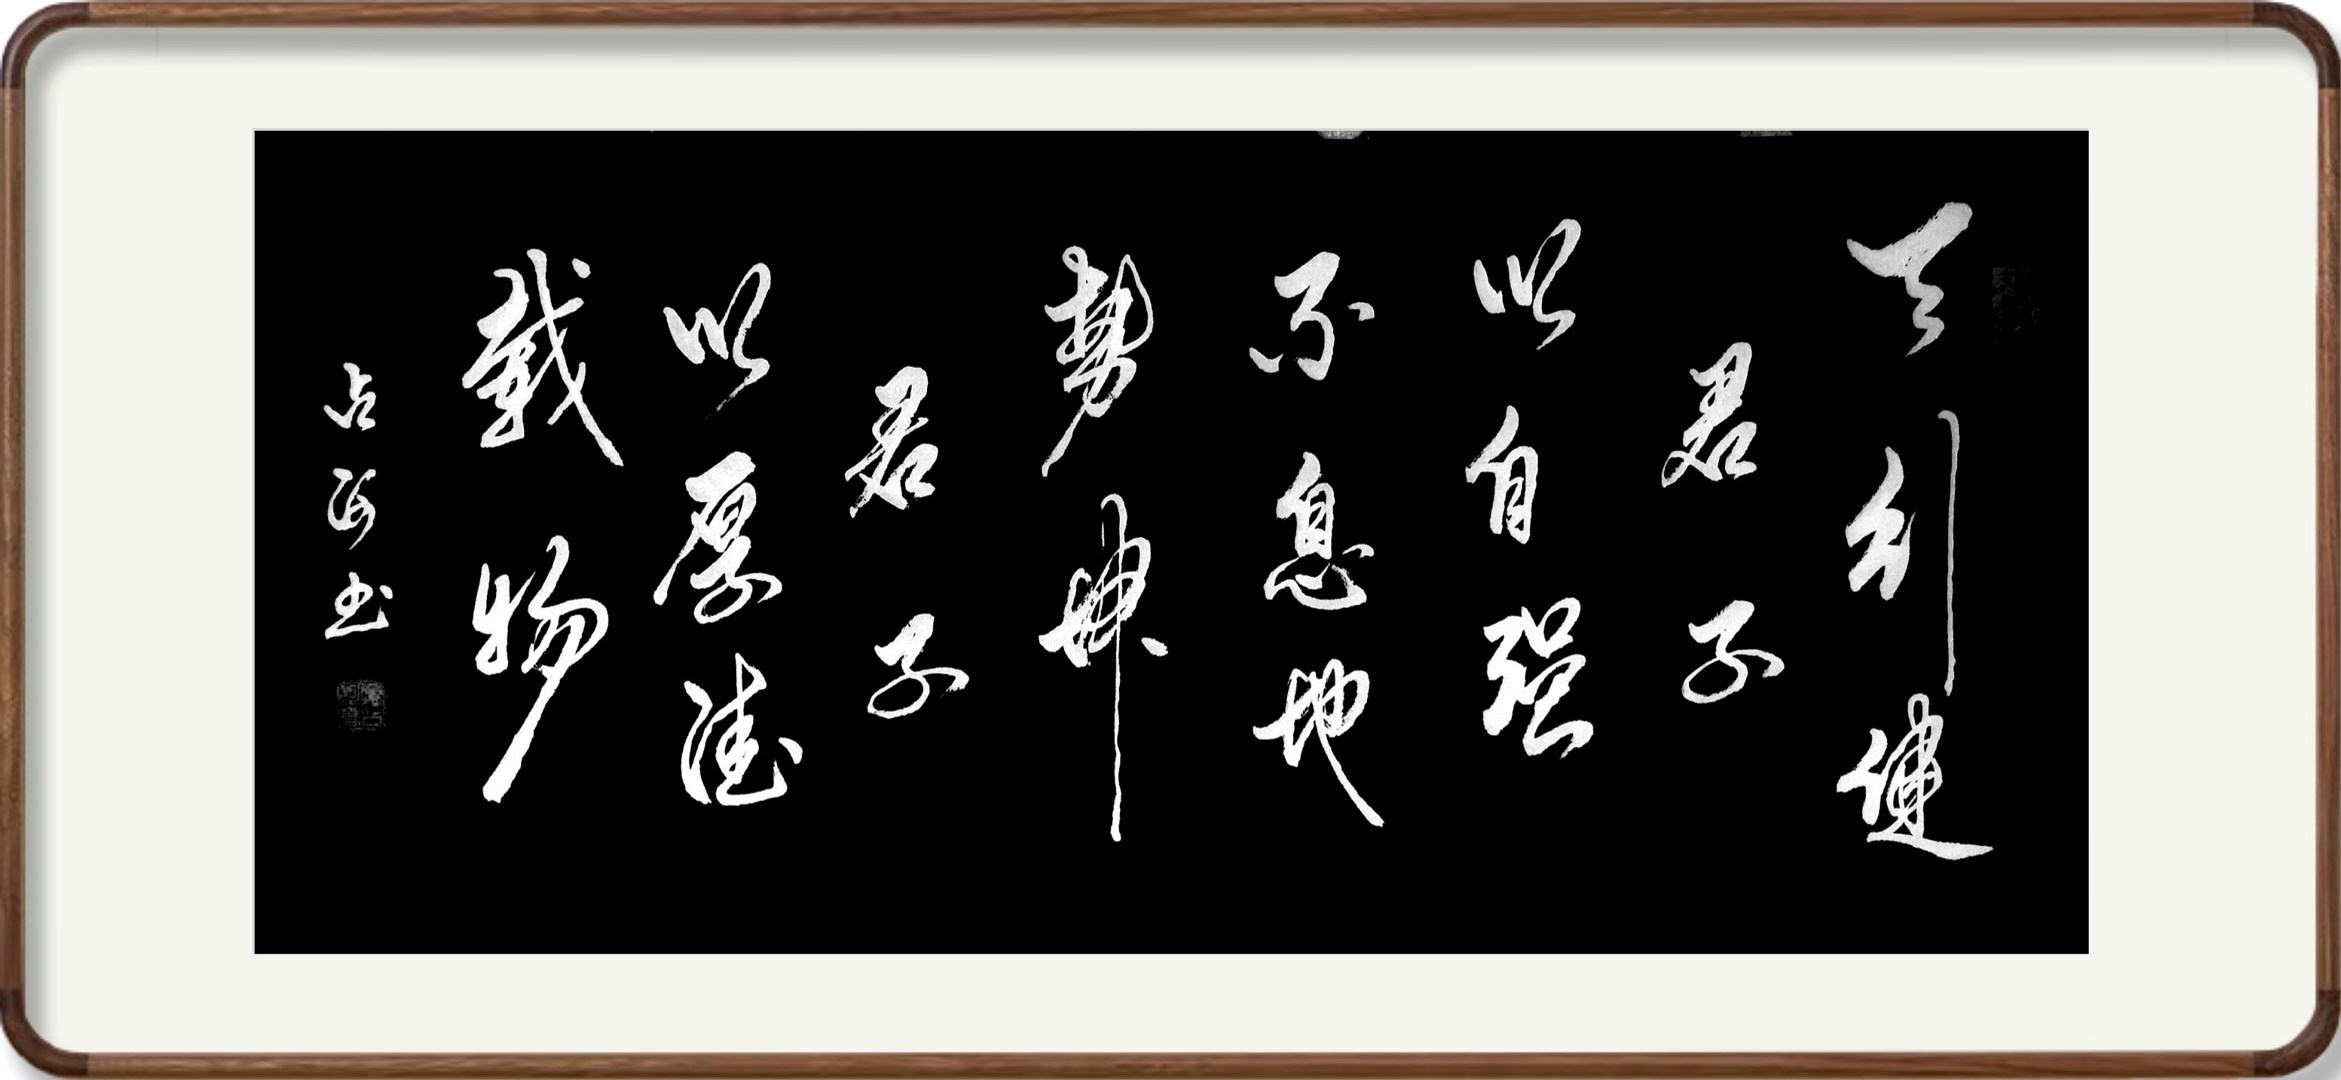 天行健
君子
以自强
不息地
势坤
君子
以厚德
载物
占河书